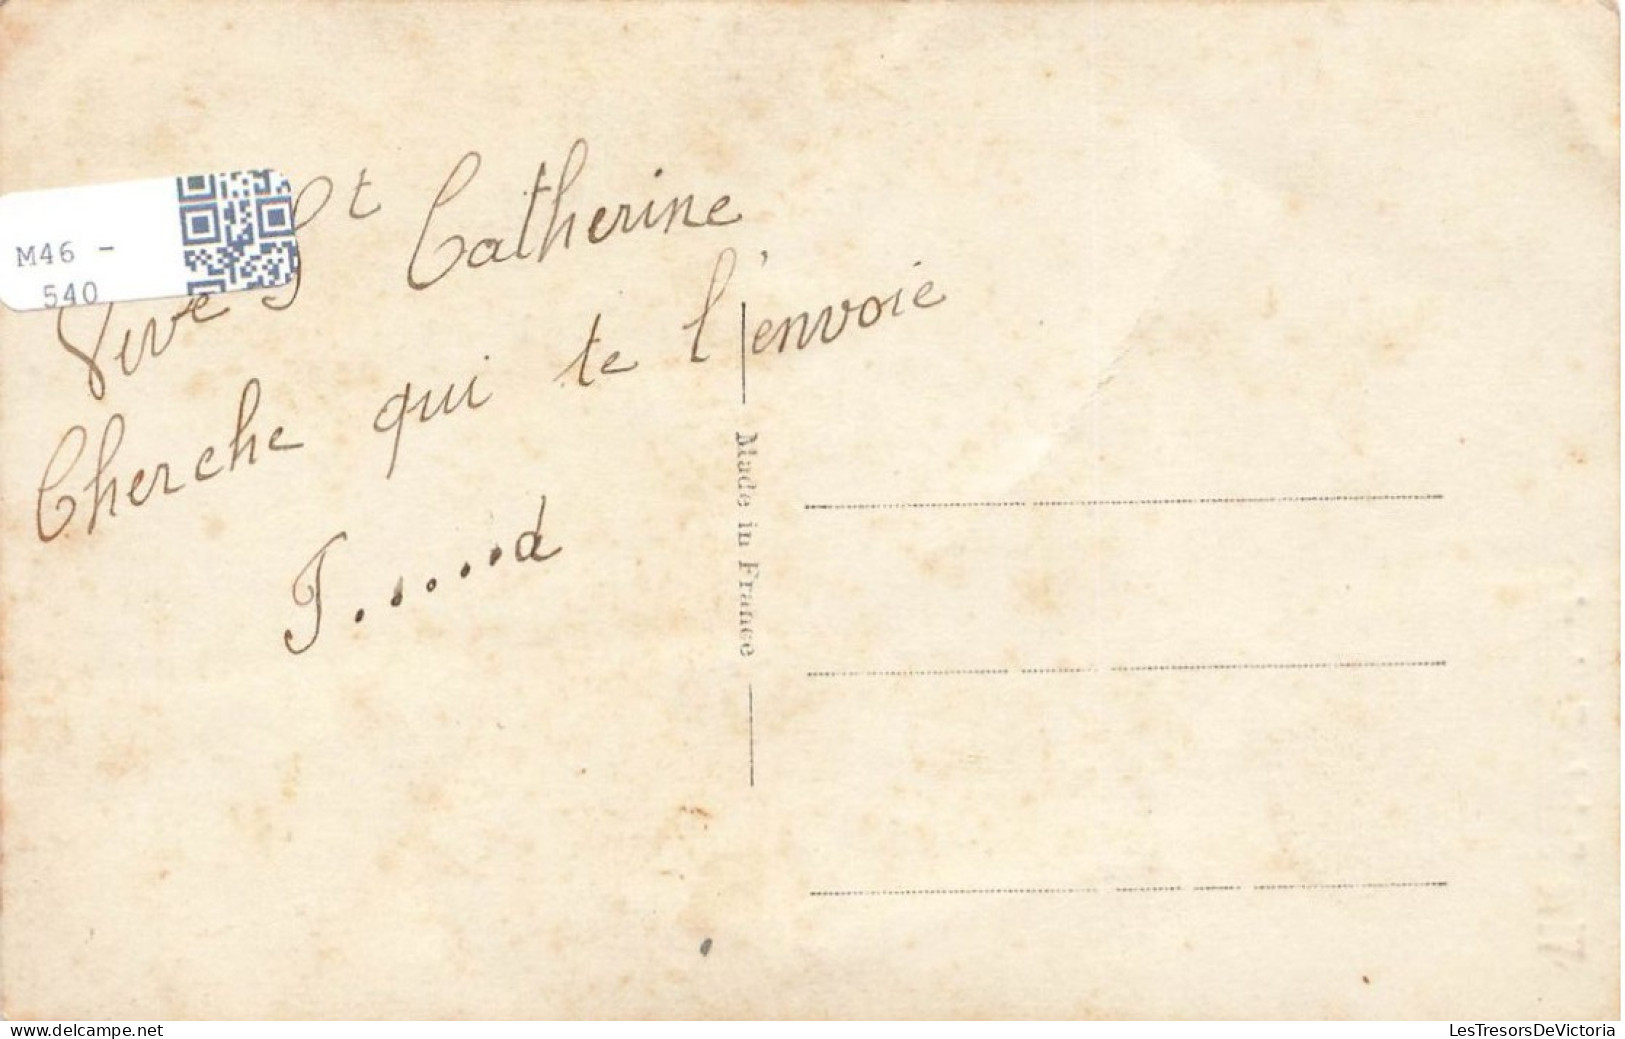 M46 -
540
Vive St Catherine
Cherche qui te l'envoie
T.....d
Made in France
www.delcampe.net
LesTresorsDeVictoria